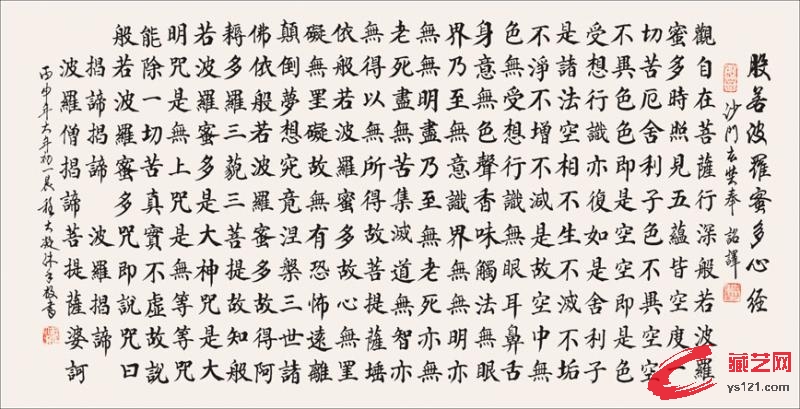 般若波羅蜜多心経
沙門玄奘奉 詔譯
觀自在菩薩行深般若波羅
蜜多時照見五蘊皆空度一
切苦厄舍利子色不異空空
不異色色即是空空即是色
受想行識亦復如是舍利子
是諸法空相不生不滅不垢
不淨不增不減是故空中無
色無受想行識無眼耳鼻舌
身意無色聲香味觸法無眼
界乃至無意識界無無明亦
無無明盡乃至無老死亦無
老死盡無苦集滅道無智亦
無得以無所得故菩提薩埵
依般若波羅蜜多故心無罣
礙無罣礙故無有恐怖遠離
顛倒夢想究竟涅槃三世諸
佛依般若波羅蜜多故得阿
耨多羅三藐三菩提故知般
若波羅蜜多是大神咒是大
明咒是無上咒是無等等咒
能除一切苦真實不虛故説
般若波羅蜜多咒即説咒曰
揭諦揭諦 波羅揭諦
波羅僧揭諦菩提薩婆訶
丙申年大年初一晨
藏艺网
ys121.com